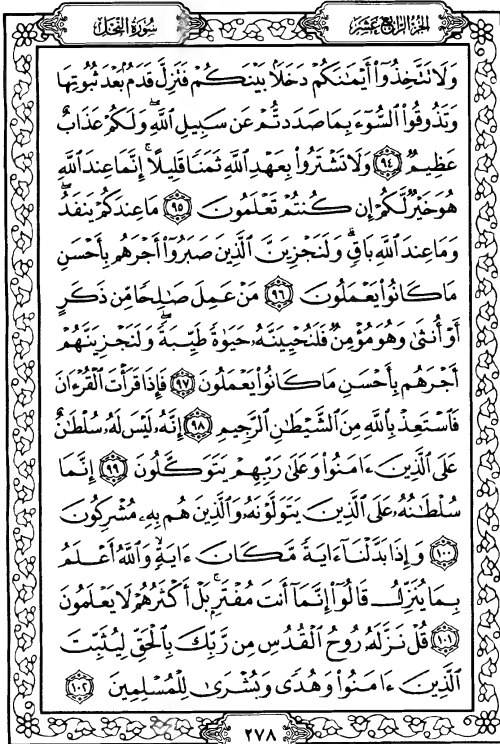 سُورَةُ النَّحۡلِ
الجُزءُ الرَّابِعَ عَشَرَ
وَلَا تَتَّخِذُوٓاْ أَيۡمَٰنَكُمۡ دَخَلَۢا بَيۡنَكُمۡ فَتَزِلَّ قَدَمُۢ بَعۡدَ ثُبُوتِهَا
وَتَذُوقُواْ ٱلسُّوٓءَ بِمَا صَدَدتُّمۡ عَن سَبِيلِ ٱللَّهِ وَلَكُمۡ عَذَابٌ
عَظِيمٞ ٩٤ وَلَا تَشۡتَرُواْ بِعَهۡدِ ٱللَّهِ ثَمَنٗا قَلِيلًاۚ إِنَّمَا عِندَ ٱللَّهِ
هُوَ خَيۡرٞ لَّكُمۡ إِن كُنتُمۡ تَعۡلَمُونَ ٩٥ مَا عِندَكُمۡ يَنفَدُ
وَمَا عِندَ ٱللَّهِ بَاقٖۗ وَلَنَجۡزِيَنَّ ٱلَّذِينَ صَبَرُوٓاْ أَجۡرَهُم بِأَحۡسَنِ
مَا كَانُواْ يَعۡمَلُونَ ٩٦ مَنۡ عَمِلَ صَٰلِحٗا مِّن ذَكَرٍ
أَوۡ أُنثَىٰ وَهُوَ مُؤۡمِنٞ فَلَنُحۡيِيَنَّهُۥ حَيَوٰةٗ طَيِّبَةٗۖ وَلَنَجۡزِيَنَّهُمۡ
أَجۡرَهُم بِأَحۡسَنِ مَا كَانُواْ يَعۡمَلُونَ ٩٧ فَإِذَا قَرَأۡتَ ٱلۡقُرۡءَانَ
فَٱسۡتَعِذۡ بِٱللَّهِ مِنَ ٱلشَّيۡطَٰنِ ٱلرَّجِيمِ ٩٨ إِنَّهُۥ لَيۡسَ لَهُۥ سُلۡطَٰنٌ
عَلَى ٱلَّذِينَ ءَامَنُواْ وَعَلَىٰ رَبِّهِمۡ يَتَوَكَّلُونَ ٩٩ إِنَّمَا
سُلۡطَٰنُهُۥ عَلَى ٱلَّذِينَ يَتَوَلَّوۡنَهُۥ وَٱلَّذِينَ هُم بِهِۦ مُشۡرِكُونَ
١٠٠ وَإِذَا بَدَّلۡنَآ ءَايَةٗ مَّكَانَ ءَايَةٖ وَٱللَّهُ أَعۡلَمُ
بِمَا يُنَزِّلُ قَالُوٓاْ إِنَّمَآ أَنتَ مُفۡتَرِۭۚ بَلۡ أَكۡثَرُهُمۡ لَا يَعۡلَمُونَ
١٠١ قُلۡ نَزَّلَهُۥ رُوحُ ٱلۡقُدُسِ مِن رَّبِّكَ بِٱلۡحَقِّ لِيُثَبِّتَ
ٱلَّذِينَ ءَامَنُواْ وَهُدٗى وَبُشۡرَىٰ لِلۡمُسۡلِمِينَ ١٠٢
٢٧٨